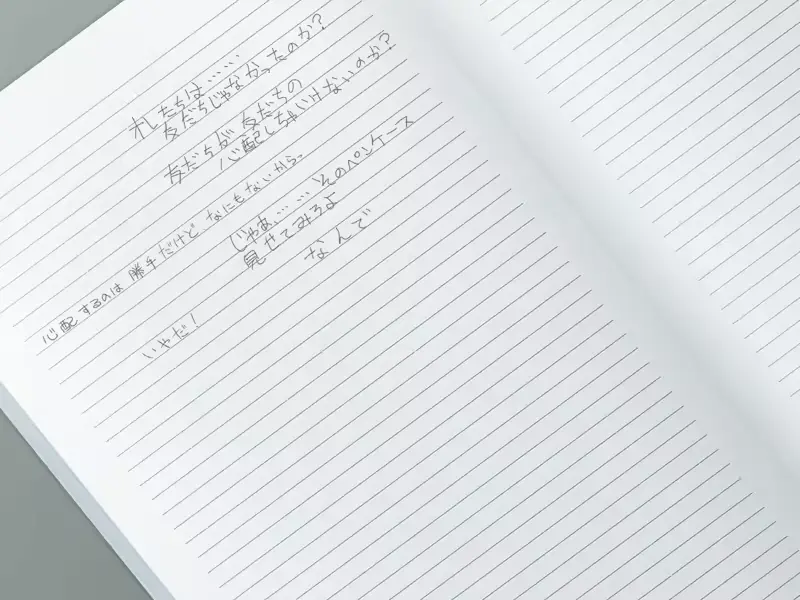 れたちは……
友だちじゃなかったのか?
友だちが、友だちの
心配しちゃいけないのか?
心配するのは勝手だけど、なにもないから。
じゃあ、……そのペンケース
見せてみろよ
なんで
いやだ!